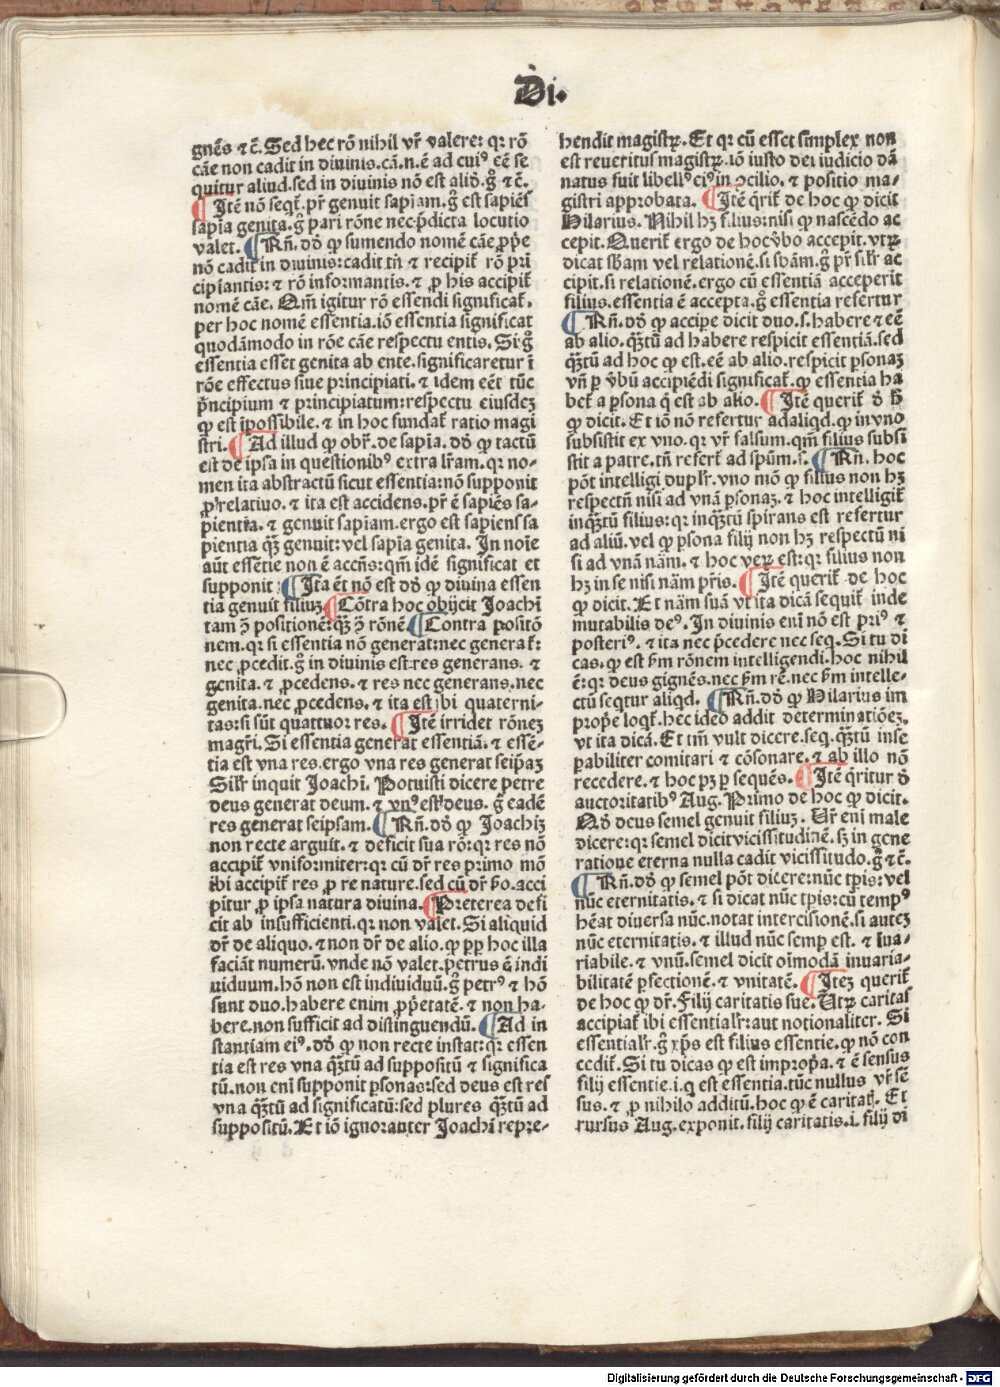 Di.
gnēs ⁊ c̄. Sed hec rō nihil vr̄ valere: qꝛ rō
cāe non cadit in diuinis. cā. n. ē ad cuiꝰ eē se
quitur aliud. sed in diuinis nō est aliđ. g̊ ⁊ c̄.
¶ Itē nō seqt̄. pr̄ genuit sapīam. g̊ est sapiēs
sapīa genita. g̊ pari rōne nec p̄dicta locutio
valet. ¶ Rn̄. dō ꝙ sumendo nomē cāe ꝓp̄e
nō cadit in diuinis: cadit tn̄ ⁊ recipit̄ rō pri
cipiantis: ⁊ rō informantis. ⁊ ꝓ his accipit̄
nomē cāe. Qm̄ igitur rō essendi significat̄.
per hoc nomē essentia. iō essentia significat
quodāmodo in rōe cāe respectu entis. Si g̊
essentia esset genita ab ente. significaretur ī
rōe effectus siue principiati. ⁊ idem eēt tūc
p̄ncipium ⁊ principiatum: respectu eiusdeꝫ
ꝙ est īpossibile. ⁊ in hoc fundat̄ ratio magi
stri. ¶ Ad illud ꝙ obr̄. de sapīa. dō ꝙ tactū
est de ipsa in questionibꝰ extra lr̄am. qꝛ no-
men ita abstractū sicut essentia: nō supponit
ꝓ relatiuo. ⁊ ita est accidens. pr̄ ē sapiēs sa-
pientia. ⁊ genuit sapīam. ergo est sapiens sa
pientia quā genuit: vel sapīa genita. In noīe
aūt essentie non ē accn̄s: qm̄ idē significat et
supponit. ¶ Ita ēt nō est dō ꝙ diuina essen
tia genuit filiuꝫ. ¶ Cōtra hoc obijcit Joachī
tam ꝯ positionē: qꝫ ꝯ rōnē. ¶ Contra positō
nem. qꝛ si essentia nō generat: nec generat̄:
nec ꝓcedit. g̊ in diuinis est res generans. ⁊
genita. ⁊ ꝓcedens. ⁊ res nec generans. nec
genita. nec ꝓcedens. ⁊ ita est ibi quaterni-
tas: si sūt quattuor res. ¶ Itē irridet rōneꝫ
magr̄i. Si essentia generat essentiā. ⁊ essē-
tia est vna res. ergo vna res generat seip̄aꝫ
Silr̄ inquit Joachī. Potuisti dicere petre
deus generat deum. ⁊ vnꝰ est deus. g̊ eadē
res generat seipsam. ¶ Rn̄. dō ꝙ Joachiꝫ
non recte arguit. ⁊ deficit sua rō: qꝛ res nō
accipit̄ vniformiter: qꝛ cū dr̄ res primo mō
ibi accipit̄ res ꝓ re nature. sed cū dr̄ ƀo. acci
pitur ꝓ ipsa natura diuina. ¶ Preterea defi
cit ab insufficienti. qꝛ non valet. Si aliquid
dr̄ de aliquo. ⁊ non dr̄ de alio. ꝙ ꝓp̄ hoc illa
faciāt numerū. vnde nō valet. petrus ē indi
uiduum. hō non est indiuiduū. g̊ petrꝰ ⁊ hō
sunt duo. habere enim ꝓp̄etatē. ⁊ non ha-
bere. non sufficit ad distinguendū. ¶ Ad in
stantiam eiꝰ. dō ꝙ non recte instat: qꝛ essen
tia est res vna qꝫtū ad suppositū ⁊ significa
tū. non enī supponit ꝑsonas: sed deus est res
vna qꝫtū ad significatū: sed plures qꝫtū ad
suppositū. Et iō ignoranter Joachī repre-
hendit magistꝝ. Et qꝛ cū esset simplex non
est reueritus magistꝝ. iō iusto dei iudicio dā
natus fuit libellꝰ eiꝰ in ꝯcilio. ⁊ positio ma-
gistri approbata. ¶ Itē q̄rit̄ de hoc ꝙ dicit
Hilarius. Nihil hꝫ filius: nisi ꝙ nascēdo ac
cepit. Querit̄ ergo de hoc v̄bo accepit. vtꝝ
dicat sb̄am vel relationē. si sb̄am. g̊ pr̄ silr̄ ac
cipit. si relationē. ergo cū essentiā acceperit
filius. essentia ē accepta. g̊ essentia refertur
¶ Rn̄. dō ꝙ accipe dicit duo. s. habere ⁊ eē
ab alio. qꝫtū ad habere respicit essentiā. sed
qꝫtū ad hoc ꝙ est. eē ab alio. respicit ꝑsonaꝫ
vn̄ ꝑ v̄bū accipiēdi significat̄. ꝙ essentia ha
bet̄ a ꝑsona q̄ est ab alio. ¶ Itē querit̄ đ ħ
ꝙ dicit. Et iō nō refertur ad aliqd. ꝙ in vno
subsistit ex vno. qꝛ vr̄ falsum. qm̄ filius subsi
stit a patre. tn̄ refert̄ ad spūm. s. ¶ Rn̄. hoc
pōt intelligi duplr̄. vno mō ꝙ filius non hꝫ
respectū nisi ad vnā ꝑsonaꝫ. ⁊ hoc intelligit̄
inqꝫtū filius: qꝛ inqꝫtū spirans est refertur
ad aliū. vel ꝙ ꝑsona filij non hꝫ respectū ni
si ad vnā nām. ⁊ hoc veꝝ est: qꝛ filius non
hꝫ in se nisi nām pr̄is. ¶ Itē querit̄ de hoc
ꝙ dicit. Et nām suā vt ita dicā sequit̄ inde
mutabilis deꝰ. In diuinis enī nō est priꝰ ⁊
posteriꝰ. ⁊ ita nec p̄cedere nec seq. Si tu di
cas. ꝙ est ẜm rōnem intelligendi. hoc nihil
ē: qꝛ deus gignēs. nec ẜm rē. nec ẜm intelle-
ctū seqtur aliqd. ¶ Rn̄. dō ꝙ Hilarius im
prop̄e loqt̄. hec ideo addit determinatiōeꝫ.
vt ita dicā. Et tm̄ vult dicere. seq. qꝫtū inse
ꝑabiliter comitari ⁊ cōsonare. ⁊ ab illo nō
recedere. ⁊ hoc pꝫ ꝑ sequēs. ¶ Itē q̄ritur đ
auctoritatibꝰ Aug. Primo de hoc ꝙ dicit.
Qđ deus semel genuit filiuꝫ. Vr̄ enī male
dicere: qꝛ semel dicit vicissitudinē. sꝫ in gene
ratione eterna nulla cadit vicissitudo. g̊ ⁊ c̄.
¶ Rn̄. dō ꝙ semel pōt dicere: nūc tꝑis: vel
nūc eternitatis. ⁊ si dicat nūc tꝑis: cū tempꝰ
hēat diuersa nūc. notat intercisionē. si auteꝫ
nūc eternitatis. ⁊ illud nūc semp est. ⁊ īua-
riabile. ⁊ vnū. semel dicit oīmodā inuaria-
bilitatē ꝑfectionē. ⁊ vnitatē. ¶ Iteꝫ querit̄
de hoc ꝙ dr̄. Filij caritatis sue. Vtꝝ caritas
accipiat̄ ibi essentialr̄: aut notionaliter. Si
essentialr̄. g̊ xp̄s est filius essentie. ꝙ nō con
cedit̄. Si tu dicas ꝙ est improp̄a. ⁊ ē sensus
filij essentie. i. q̄ est essentia. tūc nullus vr̄ sē
sus. ⁊ ꝓ nihilo additū. hoc ꝙ ē caritatꝭ. Et
rursus Aug. exponit. filij caritatis. i. filij di
Digitalisierung gefördert durch die Deutsche Forschungsgemeinschaft - DFG